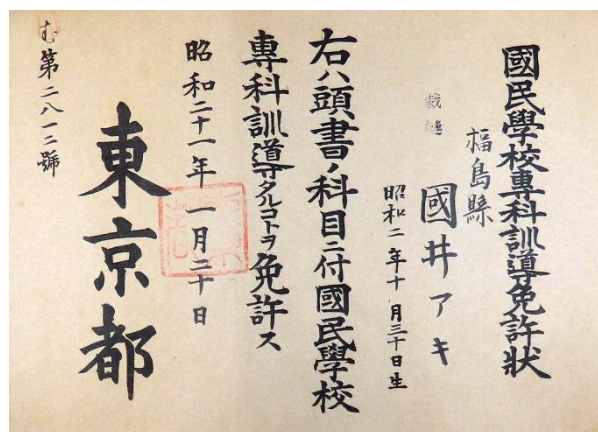 國民學校專科訓導免許狀
福島縣
裁縫
國井アキ
昭和二年十月三十日生
右ハ頭書ノ科目ニ付國民學校
專科訓導タルコトヲ免許ス
昭和二十一年一月二十日
東京都
む第二八一二號